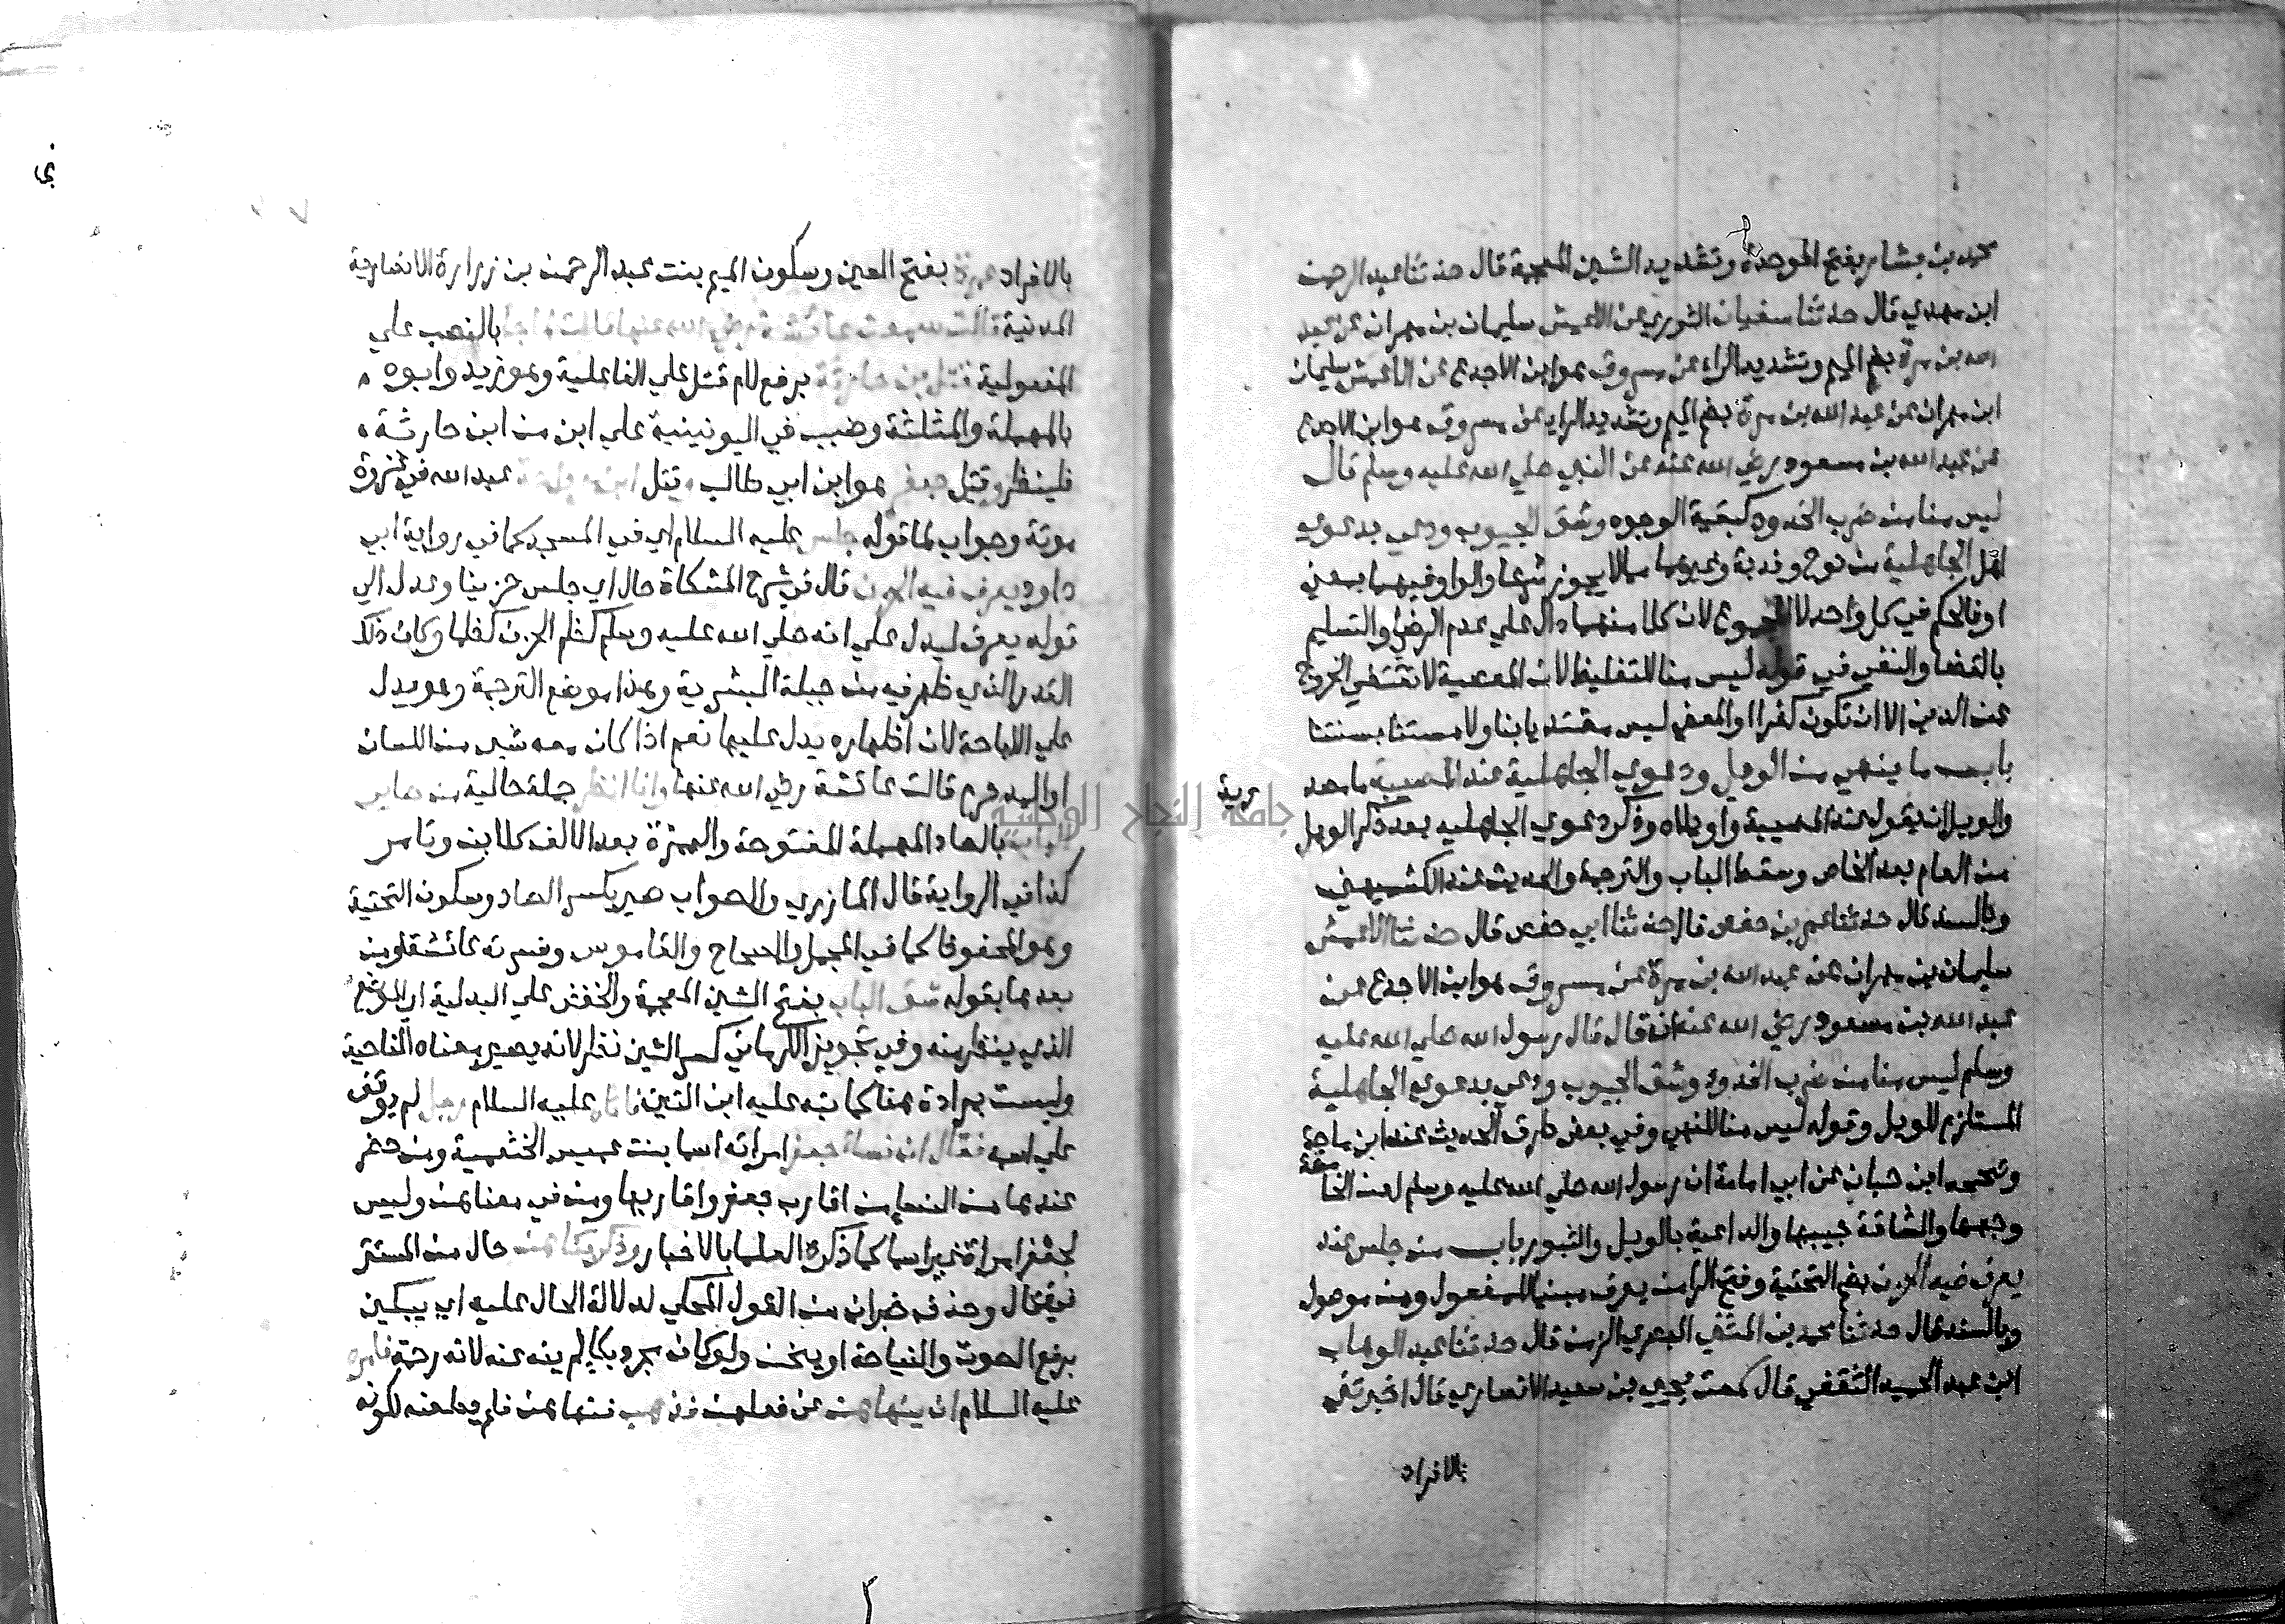 محمد بن بشار بفتح الموحدة وتشديد الشين المعجمة قال حدثنا عبد الرحمن
ابن مهدي قال حدثنا سفيان الثوري عن الاعمش سليمان بن مهران عن عبد
الله بن مرة بضم الميم وتشديد الراء عن مسروق هو ابن الاجدع عن الاعمش سليمان
ابن مهران عن عبد الله بن مرة بضم الميم وتشديد الراء عن مسروق هو ابن الاجدع
عن عبد الله بن مسعود رضي الله عنه عن النبي صلي الله عليه وسلم قال
ليس منا من ضرب الخدود كبقية الوجوه وشق الجيوب ودعي بدعوي
اهل الجاهلية من نوح وندبة وغيرهما مما لا يجوز شرعا والواو فيهما بمعني
او فالحكم في كل واحد لا المجموع لان كلا منهما دال علي عدم الرضي والتسليم
بالقضا والنفي في قوله ليس منا للتغليظ لان المعصية لا تقتضي الخروج
عن الدين الا ان تكون كفرا او المعني ليس مقتديا بنا ولا مستنا بسنتنا
باب ما ينهي من الويل ودعوي الجاهلية عند المصيبة ما مصدرية
والويل ان يقول عند المصيبة واويلاه وذكر دعوي الجاهليه بعد ذكر الويل
من العام بعد الخاص وسقط الباب والترجمة والحديث عند الكشميهني
وبالسند قال حدثنا عمر بن حفص قال حدثنا ابي حفص قال حدثنا الاعمش
سليمان بن مهران عن عبد الله بن مرة عن مسروق هو ابن الاجدع عن
عبد الله بن مسعود رضي الله عنه انه قال قال رسول الله صلي الله عليه
وسلم ليس منا من ضرب الخدود وشق الجيوب ودعي بدعوي الجاهلية
المستلزم للويل وقوله ليس منا للنهي وفي بعض طرق الحديث عند ابن ماجة
وصححه ابن حبان عن ابي امامة ان رسول الله صلي الله عليه وسلم لعن الخامشة
وجهها والشاقة جيبها والداعية بالويل والثبور باب من جلس عند
يعرف فيه الحزن بضم التحتية وفتح الرا من يعرف مبنيا للمفعول ومن موصول
وبالسند قال حدثنا محمد بن المثني البصري الزمن قال حدثنا عبد الوهاب
ابن عبد المجيد الثقفي قال سمعت يحيي بن سعيد الانصاري قال اخبرتني
بالافراد
بالافراد عمرة بفتح العين وسكون الميم بنت عبد الرحمن بن زرارة الانصارية
المدنية قالت سمعت عائشة رضي الله عنها قالت لما جا بالنصب علي
المفعولية قتل بن حارثة برفع لام قتل علي الفاعلية وهو زيد وابوه
بالمهملة والمثلثة وضبب في اليونينية علي ابن من ابن حارثة
فلينظر وقتل جعفر هو ابن ابي طالب وقتل ابن رواحة عبد الله في غزوة
موتة وجواب لما قوله جلس عليه السلام اي في المسجد كما في رواية ابي
داود يعرف فيه الحزن قال في شرح المشكاة حال اي جلس حزينا وعدل الي
قوله يعرف ليدل علي انه صلي الله عليه وسلم كظم الحزن كظما وكان ذلك
القدر الذي ظهر فيه من جبلة البشرية وهذا موضع الترجمة وهو يدل
علي الاباحة لان اظهاره يدل عليها نعم اذا كان معه شي من اللسان
او اليد حرم قالت عائشة رضي الله عنها وانا انظر جملة حالية من صاير
الباب بالصاد المهملة المفتوحة والهمزة بعد الالف كلابن وتامر
كذا في الرواية قال المازري والصواب صير بكسر الصاد وسكون التحتية
وهو المحفوظ كما في المجمل والصحاح والقاموس وفسرته عائشة او من
بعدها بقوله شق الباب بفتح الشين المعجمة والخفض علي البدلية اي الموضع
الذي ينظر منه وفي تجويز الكرماني كسر الشين نظر لانه يصير معناه الناحية
وليست مرادة هنا كما نبه عليه ابن التين فاتاه عليه السلام رجل لم يوقف
علي اسمه فقال ان نساء جعفر امراته اسما بنت عميس الخثعمية ومن حضر
عندها من النسا من اقارب جعفر واقاربها ومن في معناهن وليس
لجعفر امراة غير اسما كما ذكره العلما بالاخبار وذكر بكاهن حال من المستتر
في قال وحذف خبر ان من القول المحكي لدلالة الحال عليه اي يبكين
برفع الصوت والنياحة او ينحن ولو كان مجرد بكا لم ينه عنه لانه رحمة فامره
عليه السلام ان ينهاهن عن فعلهن فذهب فنهاهن فلم يطعنه لكونه